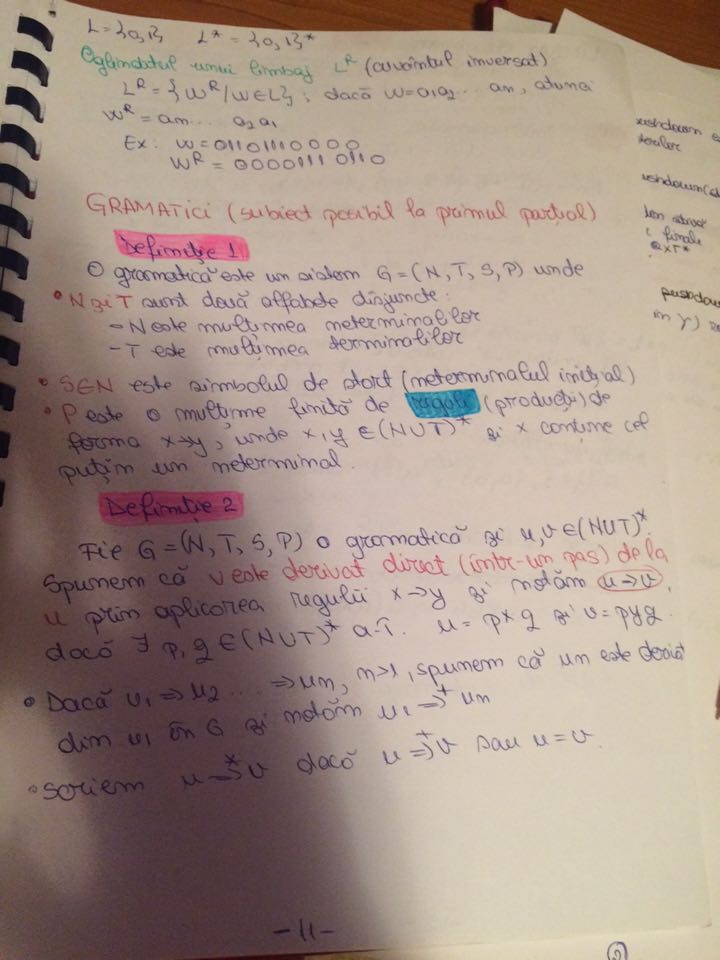 L={0,1}   L* = {0,1}*
Oglinditul unui limbaj L^R (cuvântul inversat)
L^R = {W^R/W∈L}; dacă W=a1a2... an, atunci
W^R = an.... a2a1
Ex: W=01101110000
W^R = 00001110110
GRAMATICI (subiect posibil la primul parțial)
Definiție 1
O gramatică este un sistem G=(N,T,S,P) unde
• N și T sunt două alfabete disjuncte:
- N este mulțimea neterminalilor
- T este mulțimea terminalilor
• S∈N este simbolul de start (neterminalul inițial)
• P este o mulțime finită de reguli (producții) de
forma x→y, unde x,y ∈(NUT)* și x conține cel
puțin un neterminal.
Definiție 2
Fie G=(N,T,S,P) o gramatică și u,v∈(NUT)*.
Spunem că v este derivat direct (într-un pas) de la
u prin aplicarea regulii x→y și notăm u⇒v,
dacă ∃ p,q ∈(NUT)* a.î. u=pxq și v=pyq.
• Dacă u1⇒u2...⇒un, n>1, spunem că un este derivat
din u1 în G și notăm u1⇒^+ un
• Scriem u⇒*v dacă u⇒^+v sau u=v.
-11-
pushdown
in γ)
2